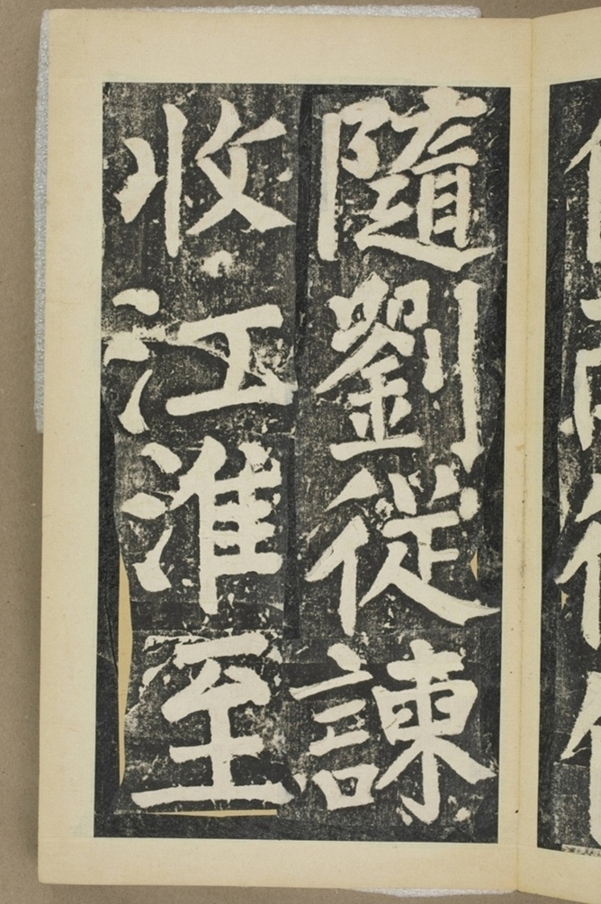 隨劉從諫
收江淮至